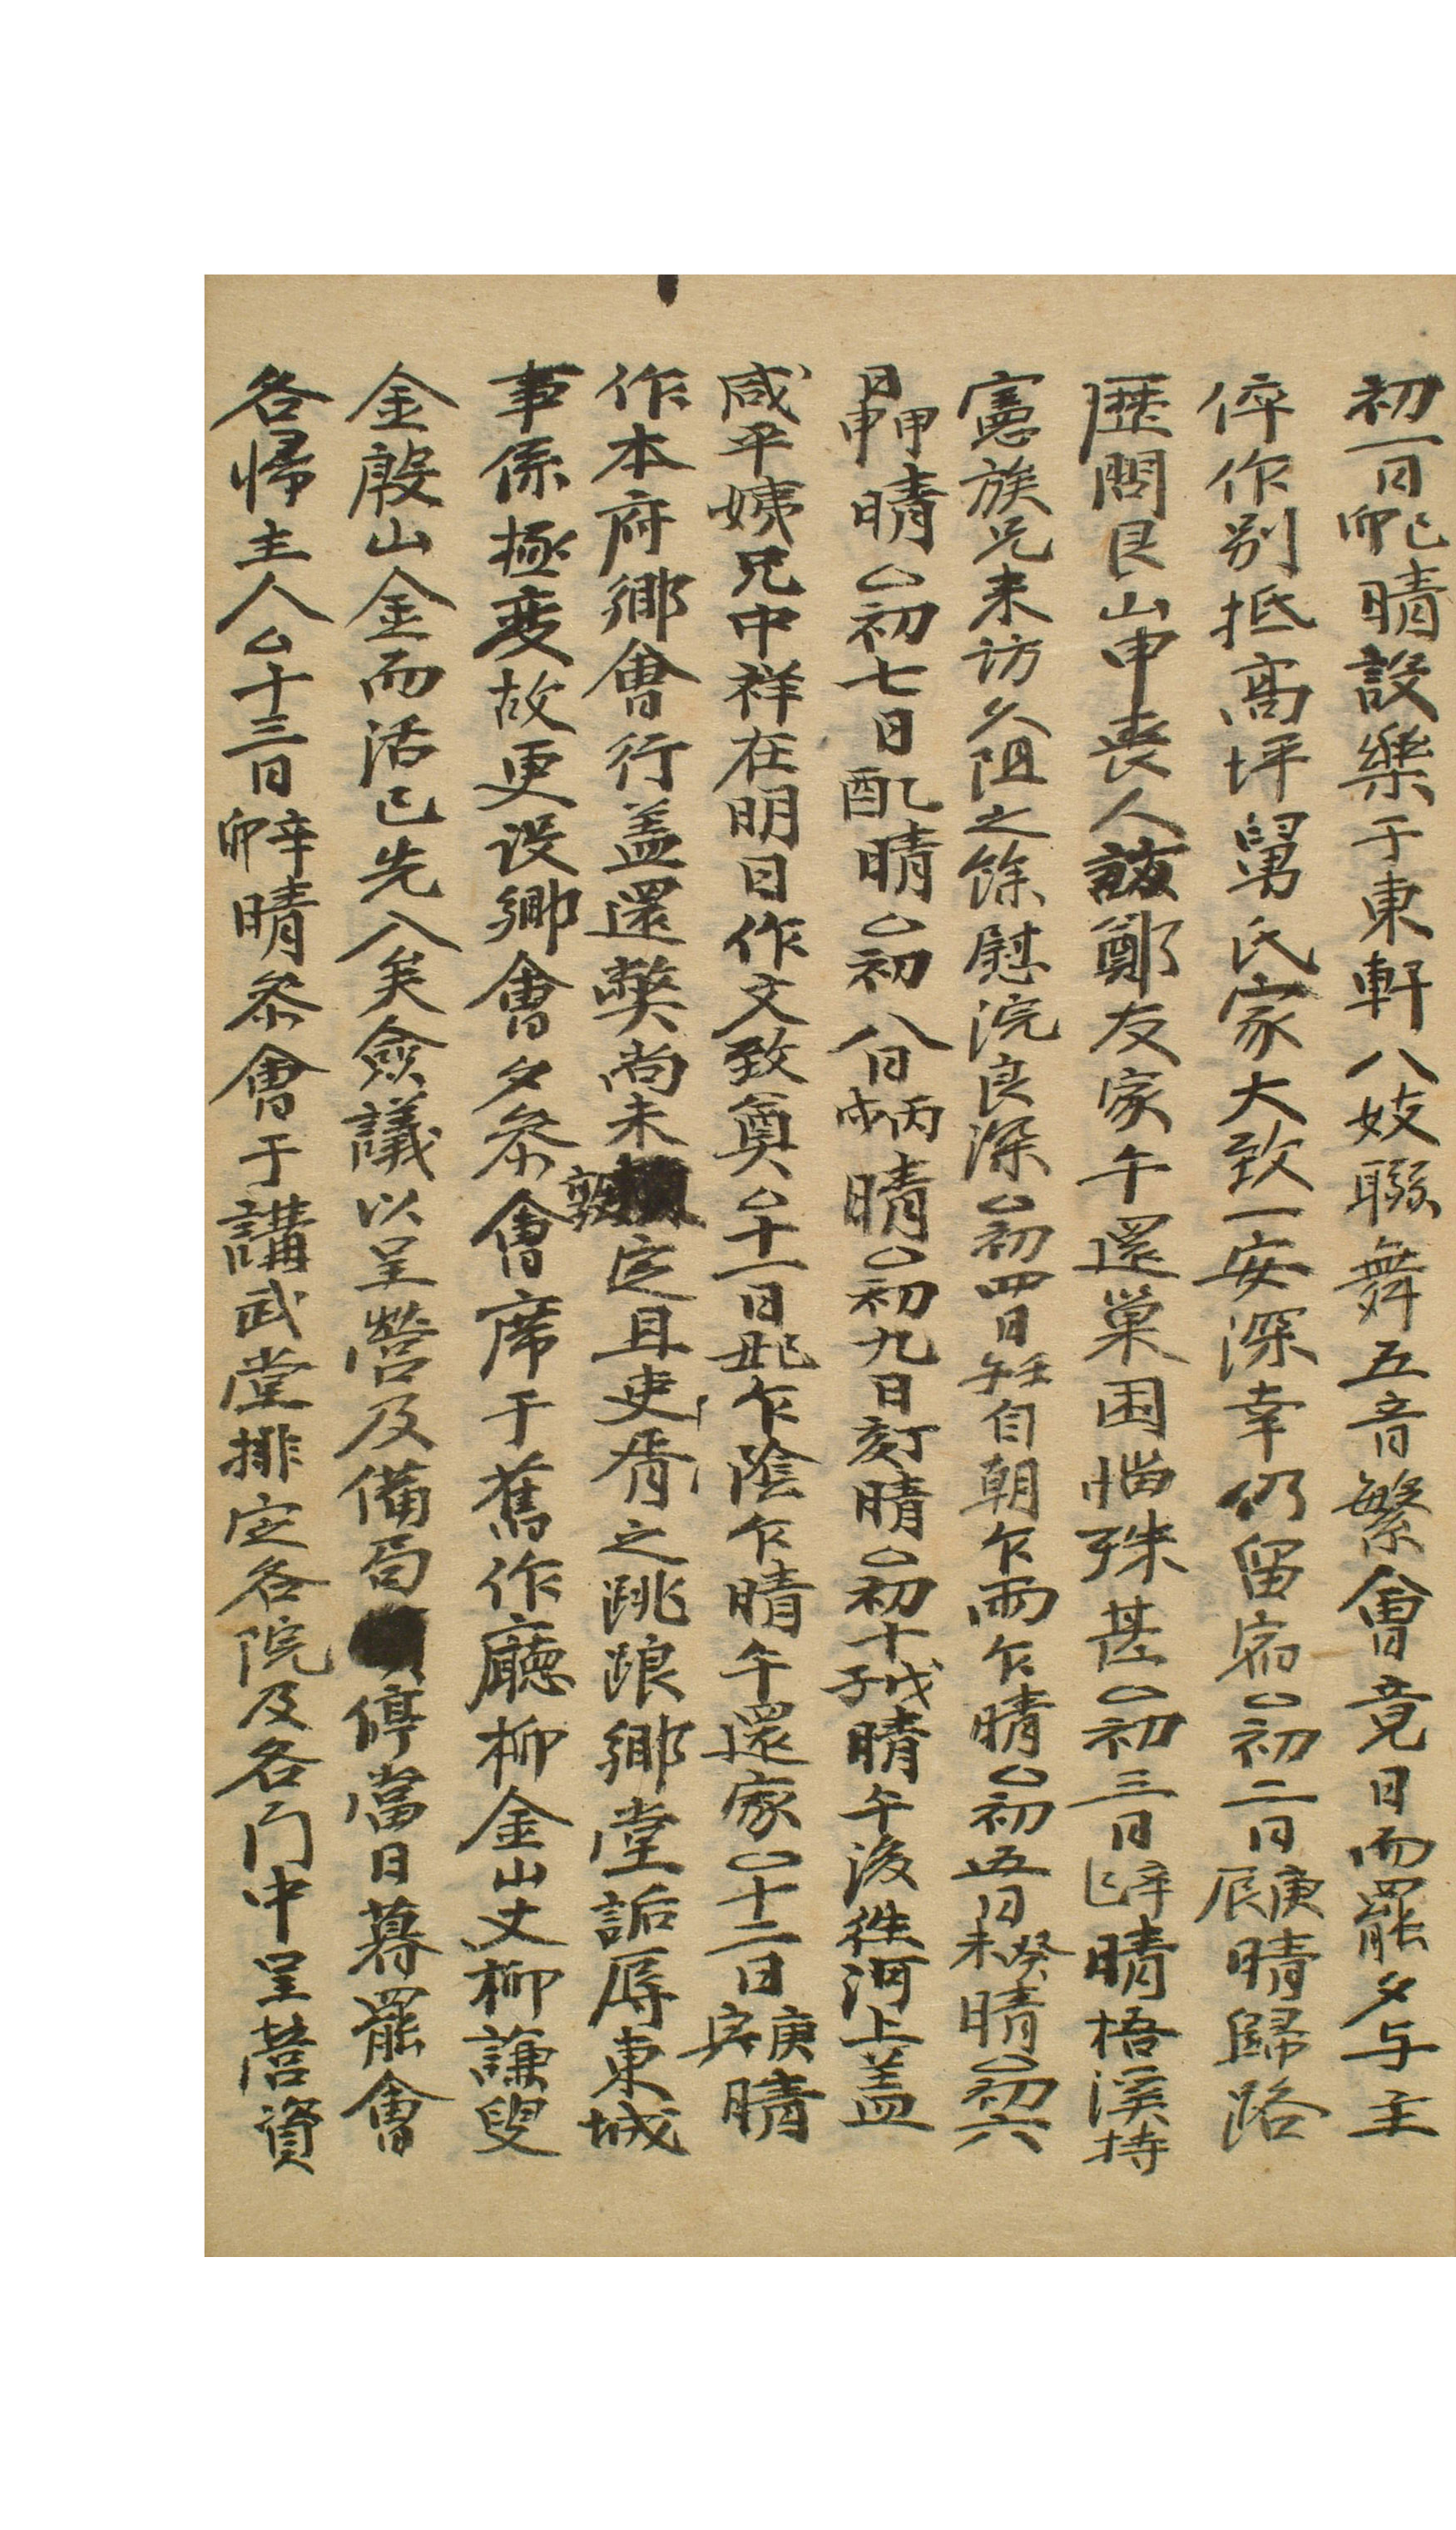 初一日己卯晴設樂于東軒八妓聯舞五音繁會竟日而罷夕与主
倅作別抵高坪舅氏家大致一安深幸仍留宿○初二日庚辰晴歸路
歷問艮山申喪人訪鄭友家午還巢困惱殊甚○初三日辛巳晴梧溪持
憲族兄来訪久阻之餘慰浣良深○初四日壬午自朝乍雨乍晴○初五日癸未晴○初六
日甲申晴○初七日乙酉晴○初八日丙戌晴○初九日丁亥晴○初十戊子晴午後徃河上盖
咸平姨兄中祥在明日作文致奠○十一日己丑乍陰乍晴午還家○十二日庚寅晴
作本府鄉會行盖還弊尚未敦定且吏胥之跳踉鄉堂詬辱東城
事係極変故更設鄉會夕叅會席于舊作廳柳金山丈柳謙叟
金殷山金而活已先入矣僉議以呈營及備局停當日暮罷會
各帰主人○十三日辛卯晴叅會于講武堂排定各院及各门中呈營資